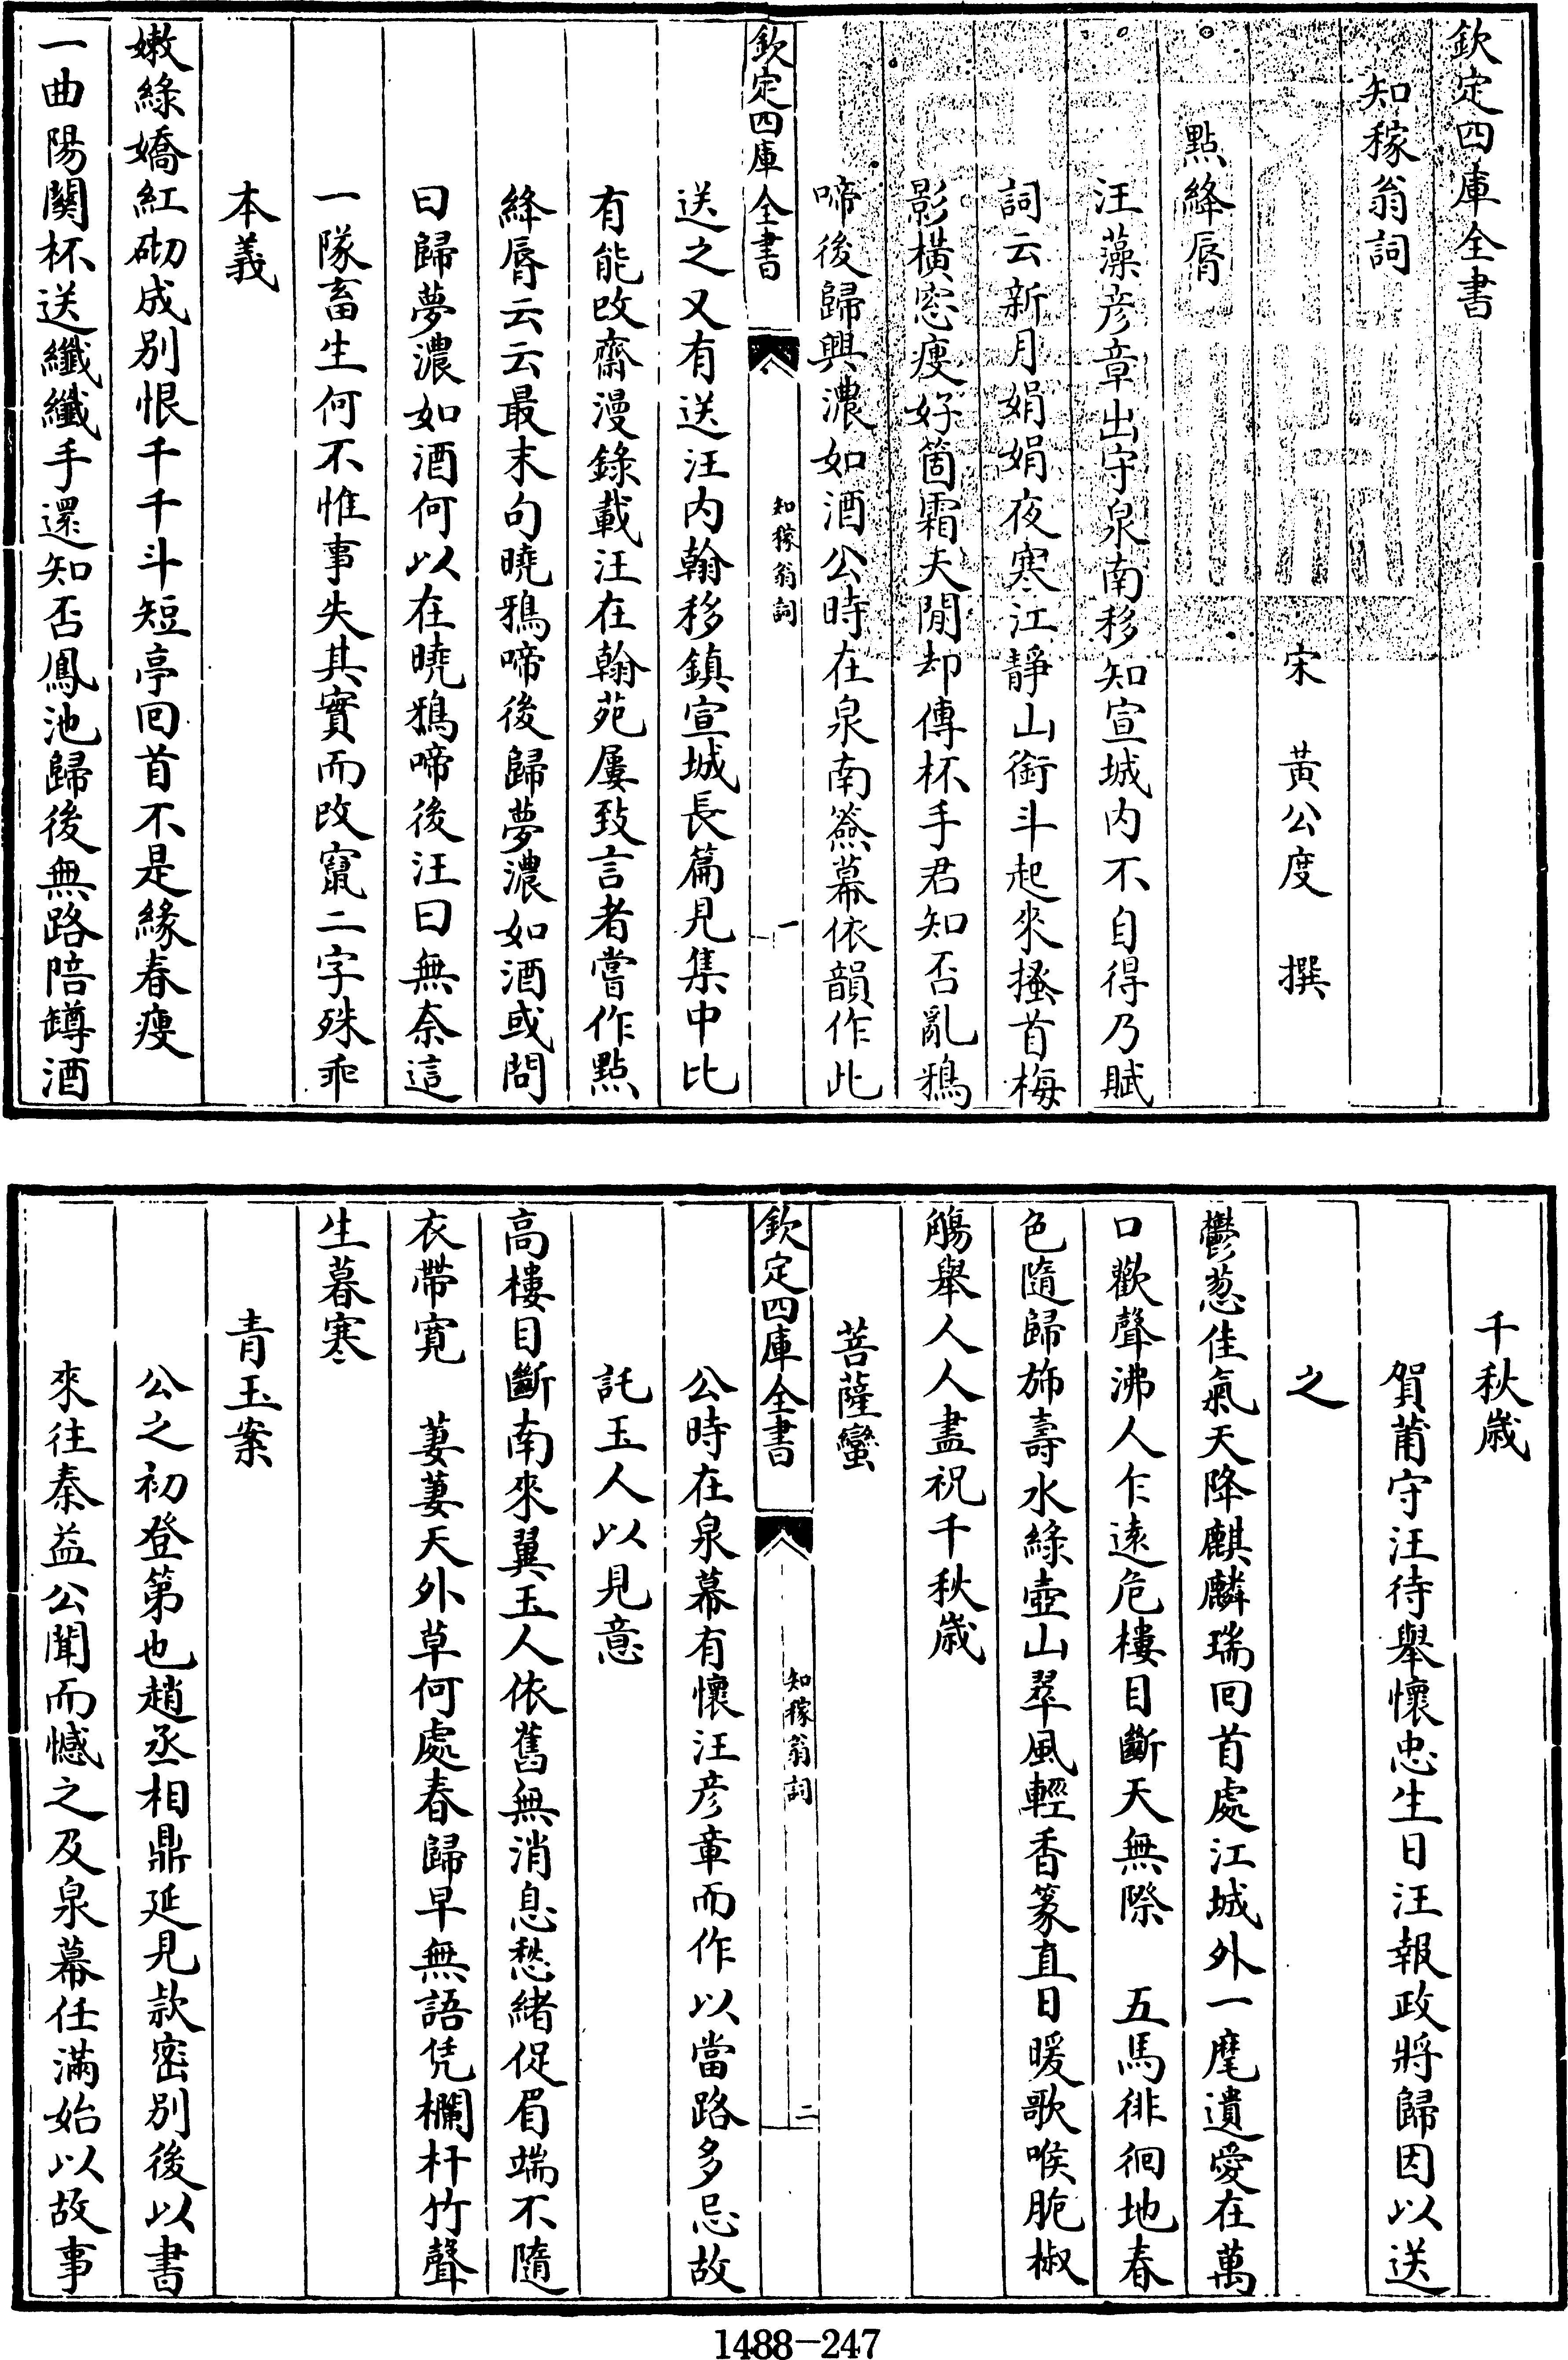 欽定四庫全書
知稼翁詞
宋　黃公度　撰
點絳脣
汪藻彦章出守泉南移知宣城内不自得乃賦
詞云新月娟娟夜寒江靜山銜斗起來搔首梅
影橫窓瘦好箇霜天閒却傳杯手君知否亂鴉
啼後歸興濃如酒公時在泉南簽幕依韻作此
欽定四庫全書
知稼翁詞
一
送之又有送汪内翰移鎮宣城長篇見集中比
有能改齋漫錄載汪在翰苑屢致言者嘗作點
絳脣云云最末句曉鴉啼後歸夢濃如酒或問
曰歸夢濃如酒何以在曉鴉啼後汪曰無奈這
一隊畜生何不惟事失其實而改竄二字殊乖
本義
嫩綠嬌紅砌成别恨千千斗短亭回首不是緣春瘦
一曲陽關杯送纖纖手還知否鳳池歸後無路陪罇酒
千秋歲
賀莆守汪待舉懷忠生日汪報政將歸因以送
之
鬱葱佳氣天降麒麟瑞回首處江城外一麾遺愛在萬
口歡聲沸人乍遠危樓目斷天無際　五馬徘徊地春
色隨歸斾壽水綠壺山翠風輕香篆直日暖歌喉脆椒
觴舉人人盡祝千秋歲
菩薩蠻
欽定四庫全書
知稼翁詞
二
公時在泉幕有懷汪彦章而作以當路多忌故
託玉人以見意
高樓目斷南來翼玉人依舊無消息愁緒促眉端不隨
衣帶寬　萋萋天外草何處春歸早無語凭欄杆竹聲
生暮寒
青玉案
公之初登第也趙丞相鼎延見款密别後以書
來往秦益公聞而憾之及泉幕任滿始以故事
1488-247